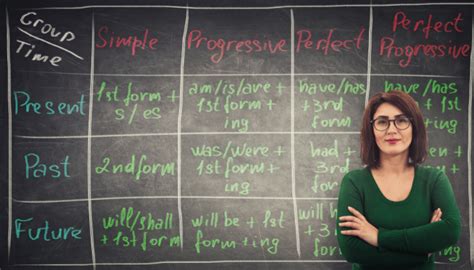 Group
Time
Simple
Progressive
Perfect
Perfect
Progressive
Present
1st form +
s/es
am/is/are +
+ 1st form +
+ ing
have/has
+3rd
form
have/has
Past
2ndform
was/were +
+ 1st form +
+ ing
had +
+ 3
form
Future
will/shall
+1st form
will be + 1st
form +ing